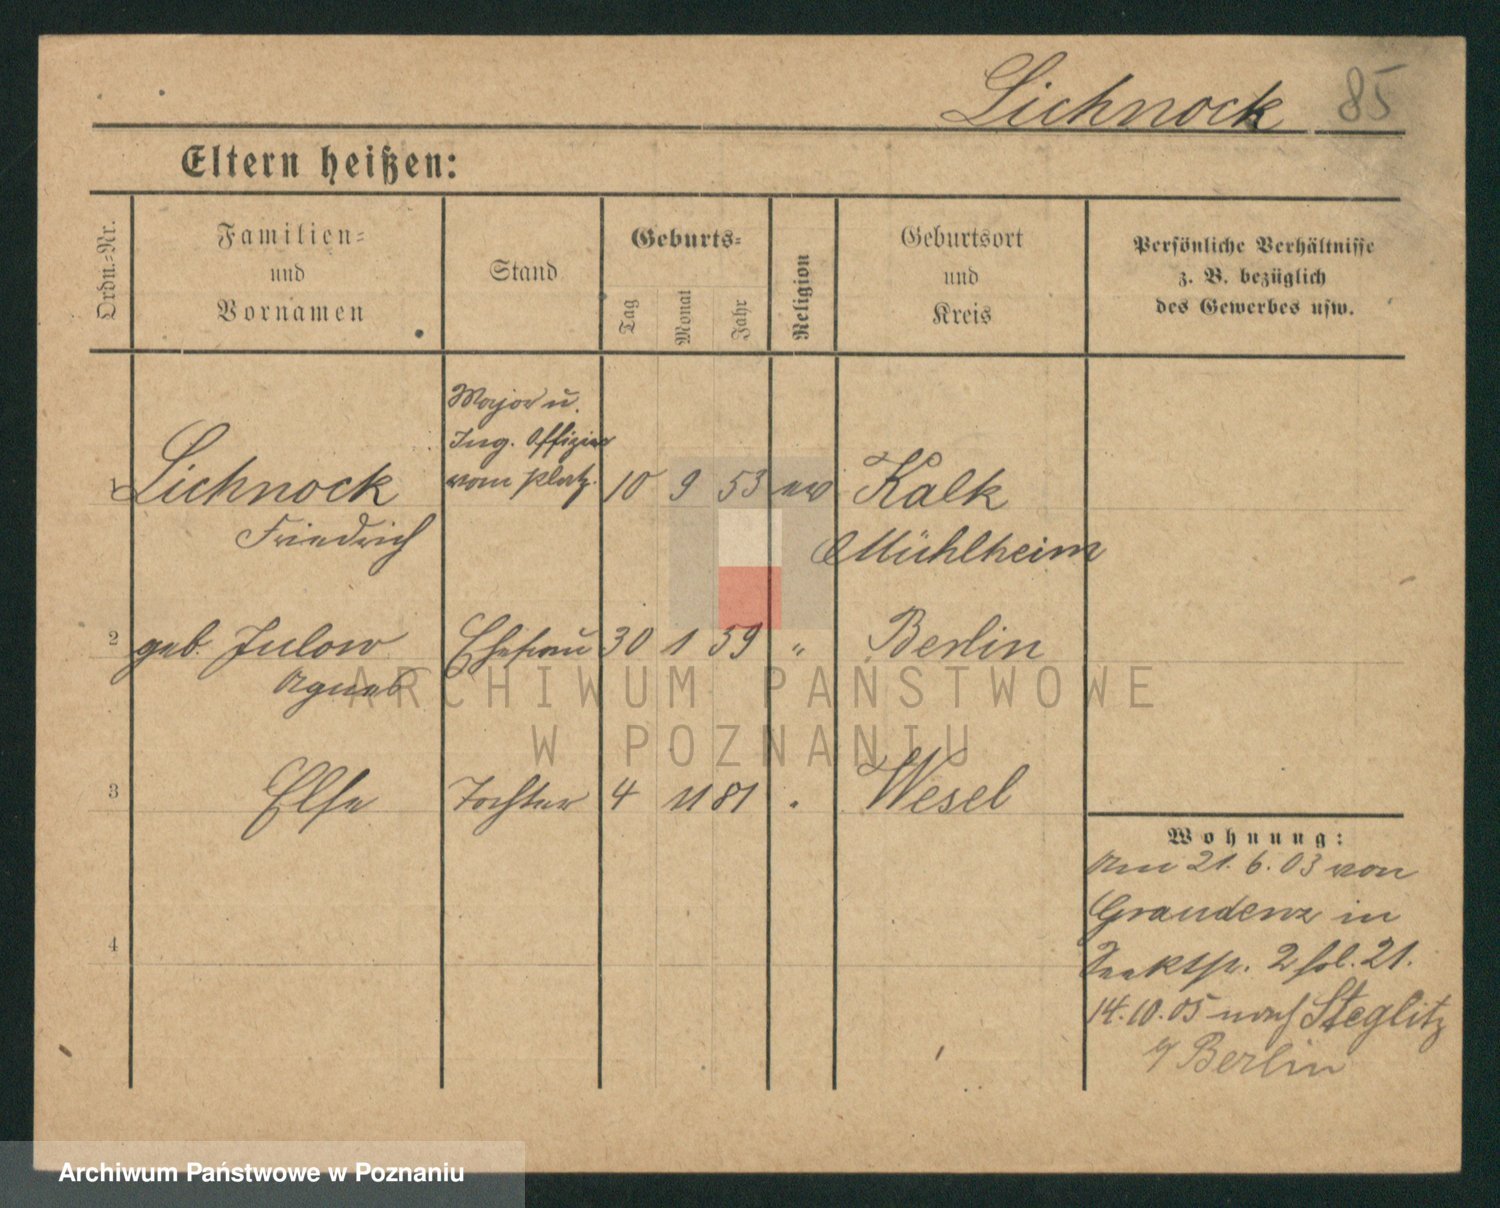 Lichnock 85
Eltern heißen:
Ordn.=Nr.
Familien=
und
Vornamen
Stand
Geburts=
Tag
Monat
Jahr
Religion
Geburtsort
und
Kreis
Persönliche Verhältnisse
z. B. bezüglich
des Gewerbes usw.
Major u.
Ing. Offizier
vom Platz.
1 Lichnock 10 9 53 ev Kalk
Friedrich Mühlheim
2 geb. Julow Ehefrau 30 1 59 " Berlin
Agnes
ARCHIWUM PAŃSTWOWE
W POZNANIU
3 Else Tochter 4 11 81 " Wesel
Wohnung:
Am 21.6.03 von
Graudenz in
2 fol. 21.
4
14.10.05 nach Steglitz
b/ Berlin
Archiwum Państwowe w Poznaniu